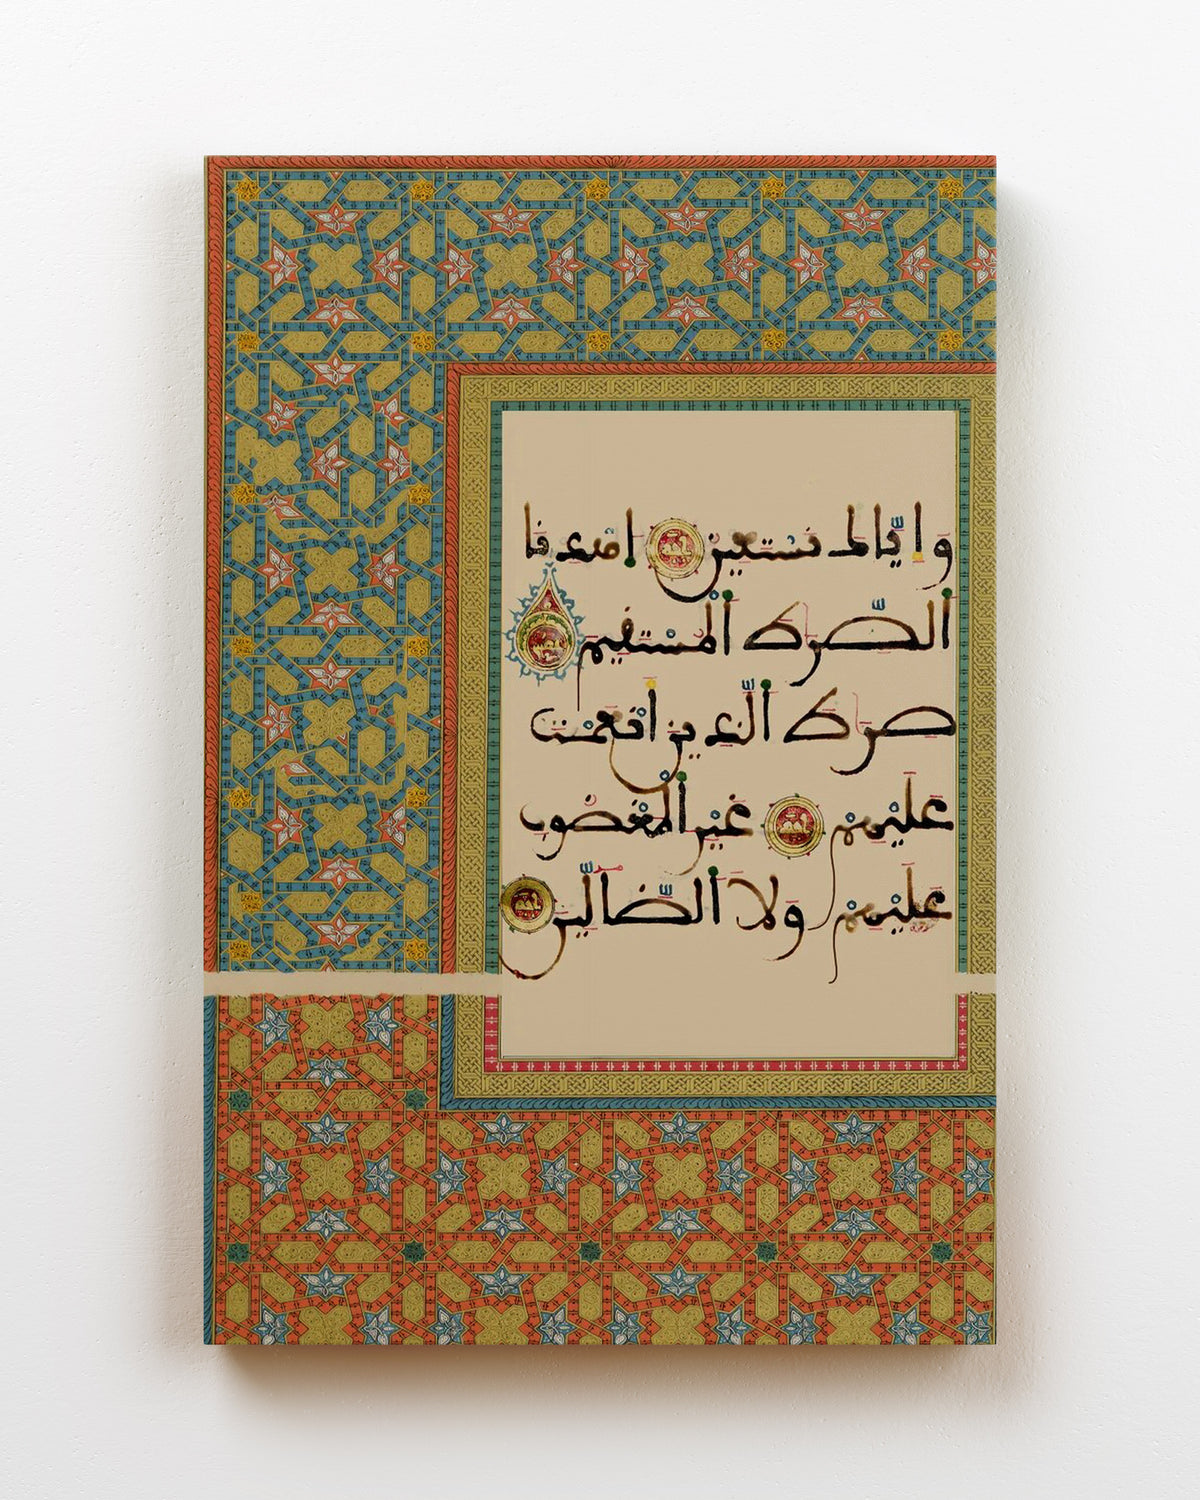 وإيّاك نستعين اهدنا
الصّرٰط المستقيم
صرٰط الّذين أنعمت
عليهم غير المغضوب
عليهم ولا الضّآلّين